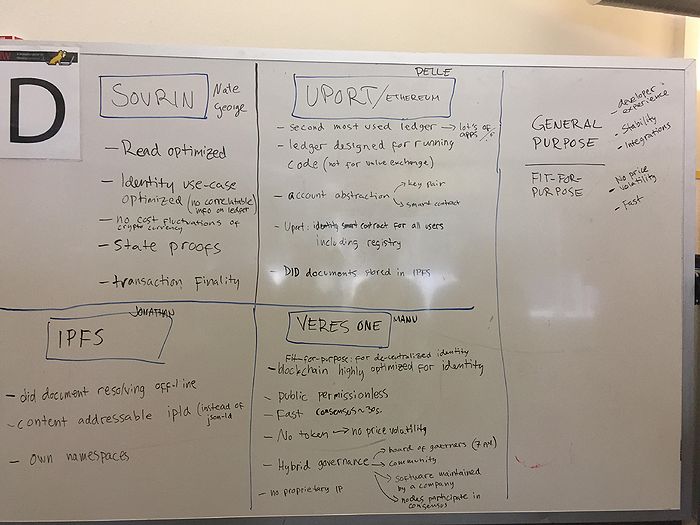 D
SOVRIN
Nate
George
- Read optimized
- Identity use-case
optimized (no correlatable
info on ledger)
- no cost fluctuations of
crypto currency
- State proofs
- transaction Finality
PELLE
UPORT/ETHEREUM
- second most used ledger → lot's of
apps
- ledger designed for running
code (not for value exchange)
- account abstraction
key pair
smart contract
- Uport: identity smart contract for all users
including registry
- DID documents stored in IPFS
GENERAL
PURPOSE
- developer
experience
- Stability
- Integrations
FIT-FOR-
PURPOSE
- No price
volatility
- Fast
JONATHAN
IPFS
- did document resolving off-line
- content addressable ipld (instead of
json-ld
- own namespaces
VERES ONE
MANU
Fit-for-purpose: for decentralized identity
- blockchain highly optimized for identity
- public permissionless
- Fast consensus ~30s.
- No token → no price volatility
- Hybrid governance
board of governers
community
software maintained
by a company
nodes participate in
consensus
- no proprietary IP